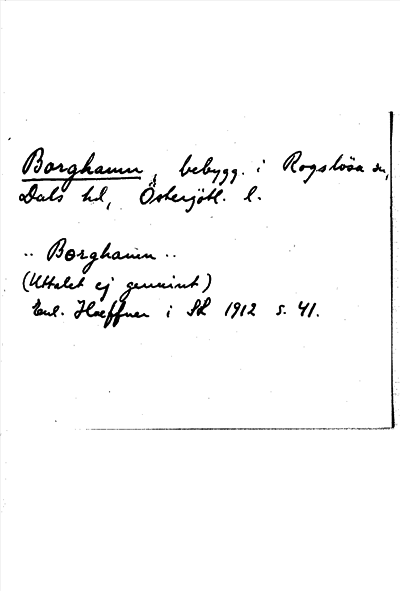 Borghamn, bebygg. i Rogslösa sn,
Dals hd, Östergötl. l.
·· Borghamn ··
(Uttalet ej genuint)
Enl. Haeffner i SL 1912 s. 41.